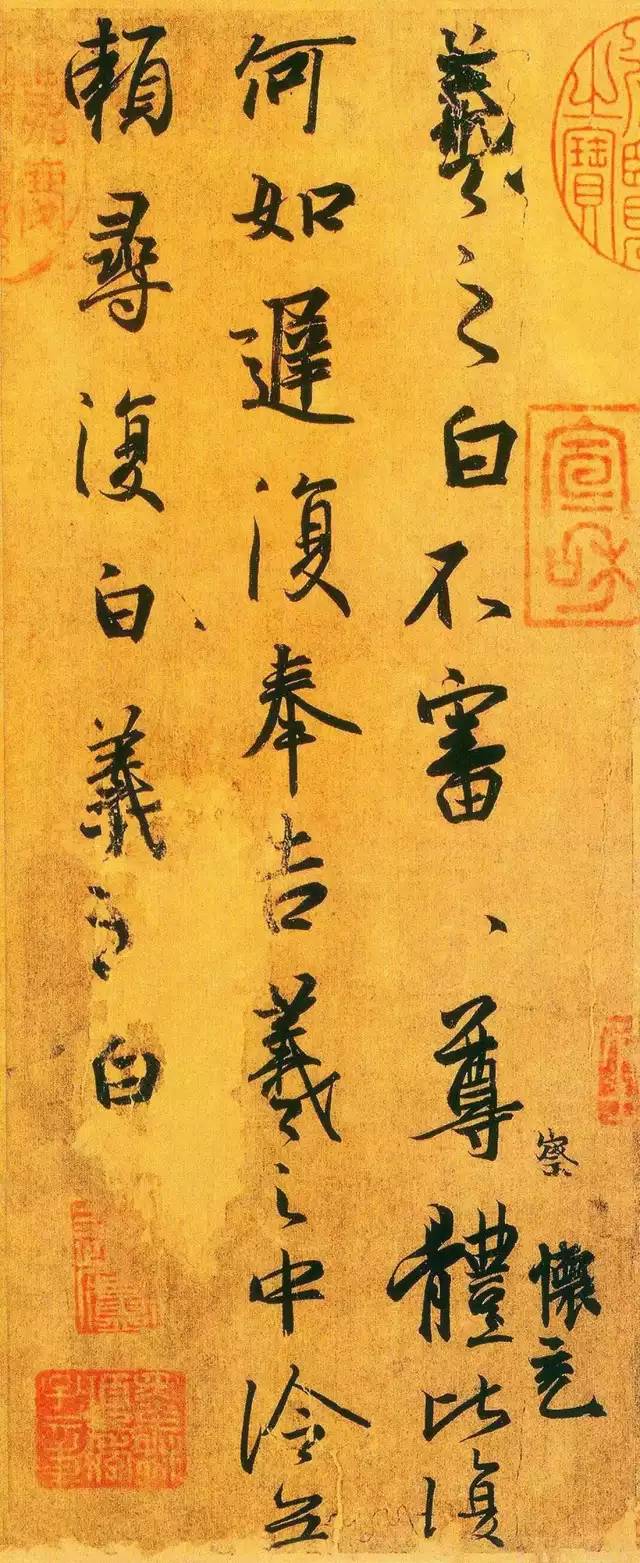 羲之白不審、尊體比復
何如遲復奉告羲之中冷無
賴尋復白、羲之白
察
懷充
宣和